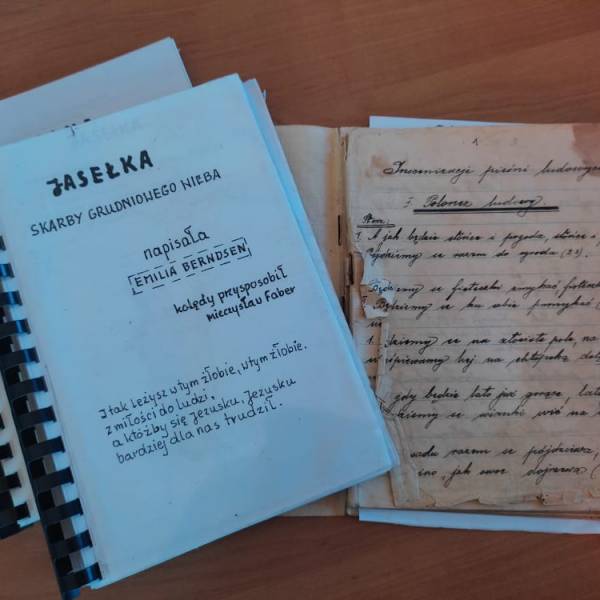 JASEŁKA
SKARBY GRUDNIOWEGO NIEBA
napisała
EMILIA BERNDSEN
kolędy przysposobił
mieczysław Faber
I tak leżysz w tym żłobie, w tym żłobie,
z miłości do ludzi,
a któżby się Jezusku, Jezusku
bardziej dla nas trudził.
Inscenizacje pieśni ludowych
I. Polonez ludowy
1. A jak będzie słońce i pogoda, słońce i
Pójdziemy se razem do ogroda (2x).
Będziemy se fiołeczki smykać
Będziemy se ku sobie pomykać
se na złociste pola, na
hej na chłopska
gdy będzie lato już gorące,
se wianki wić na
razem se
jak owoc dojrzewa